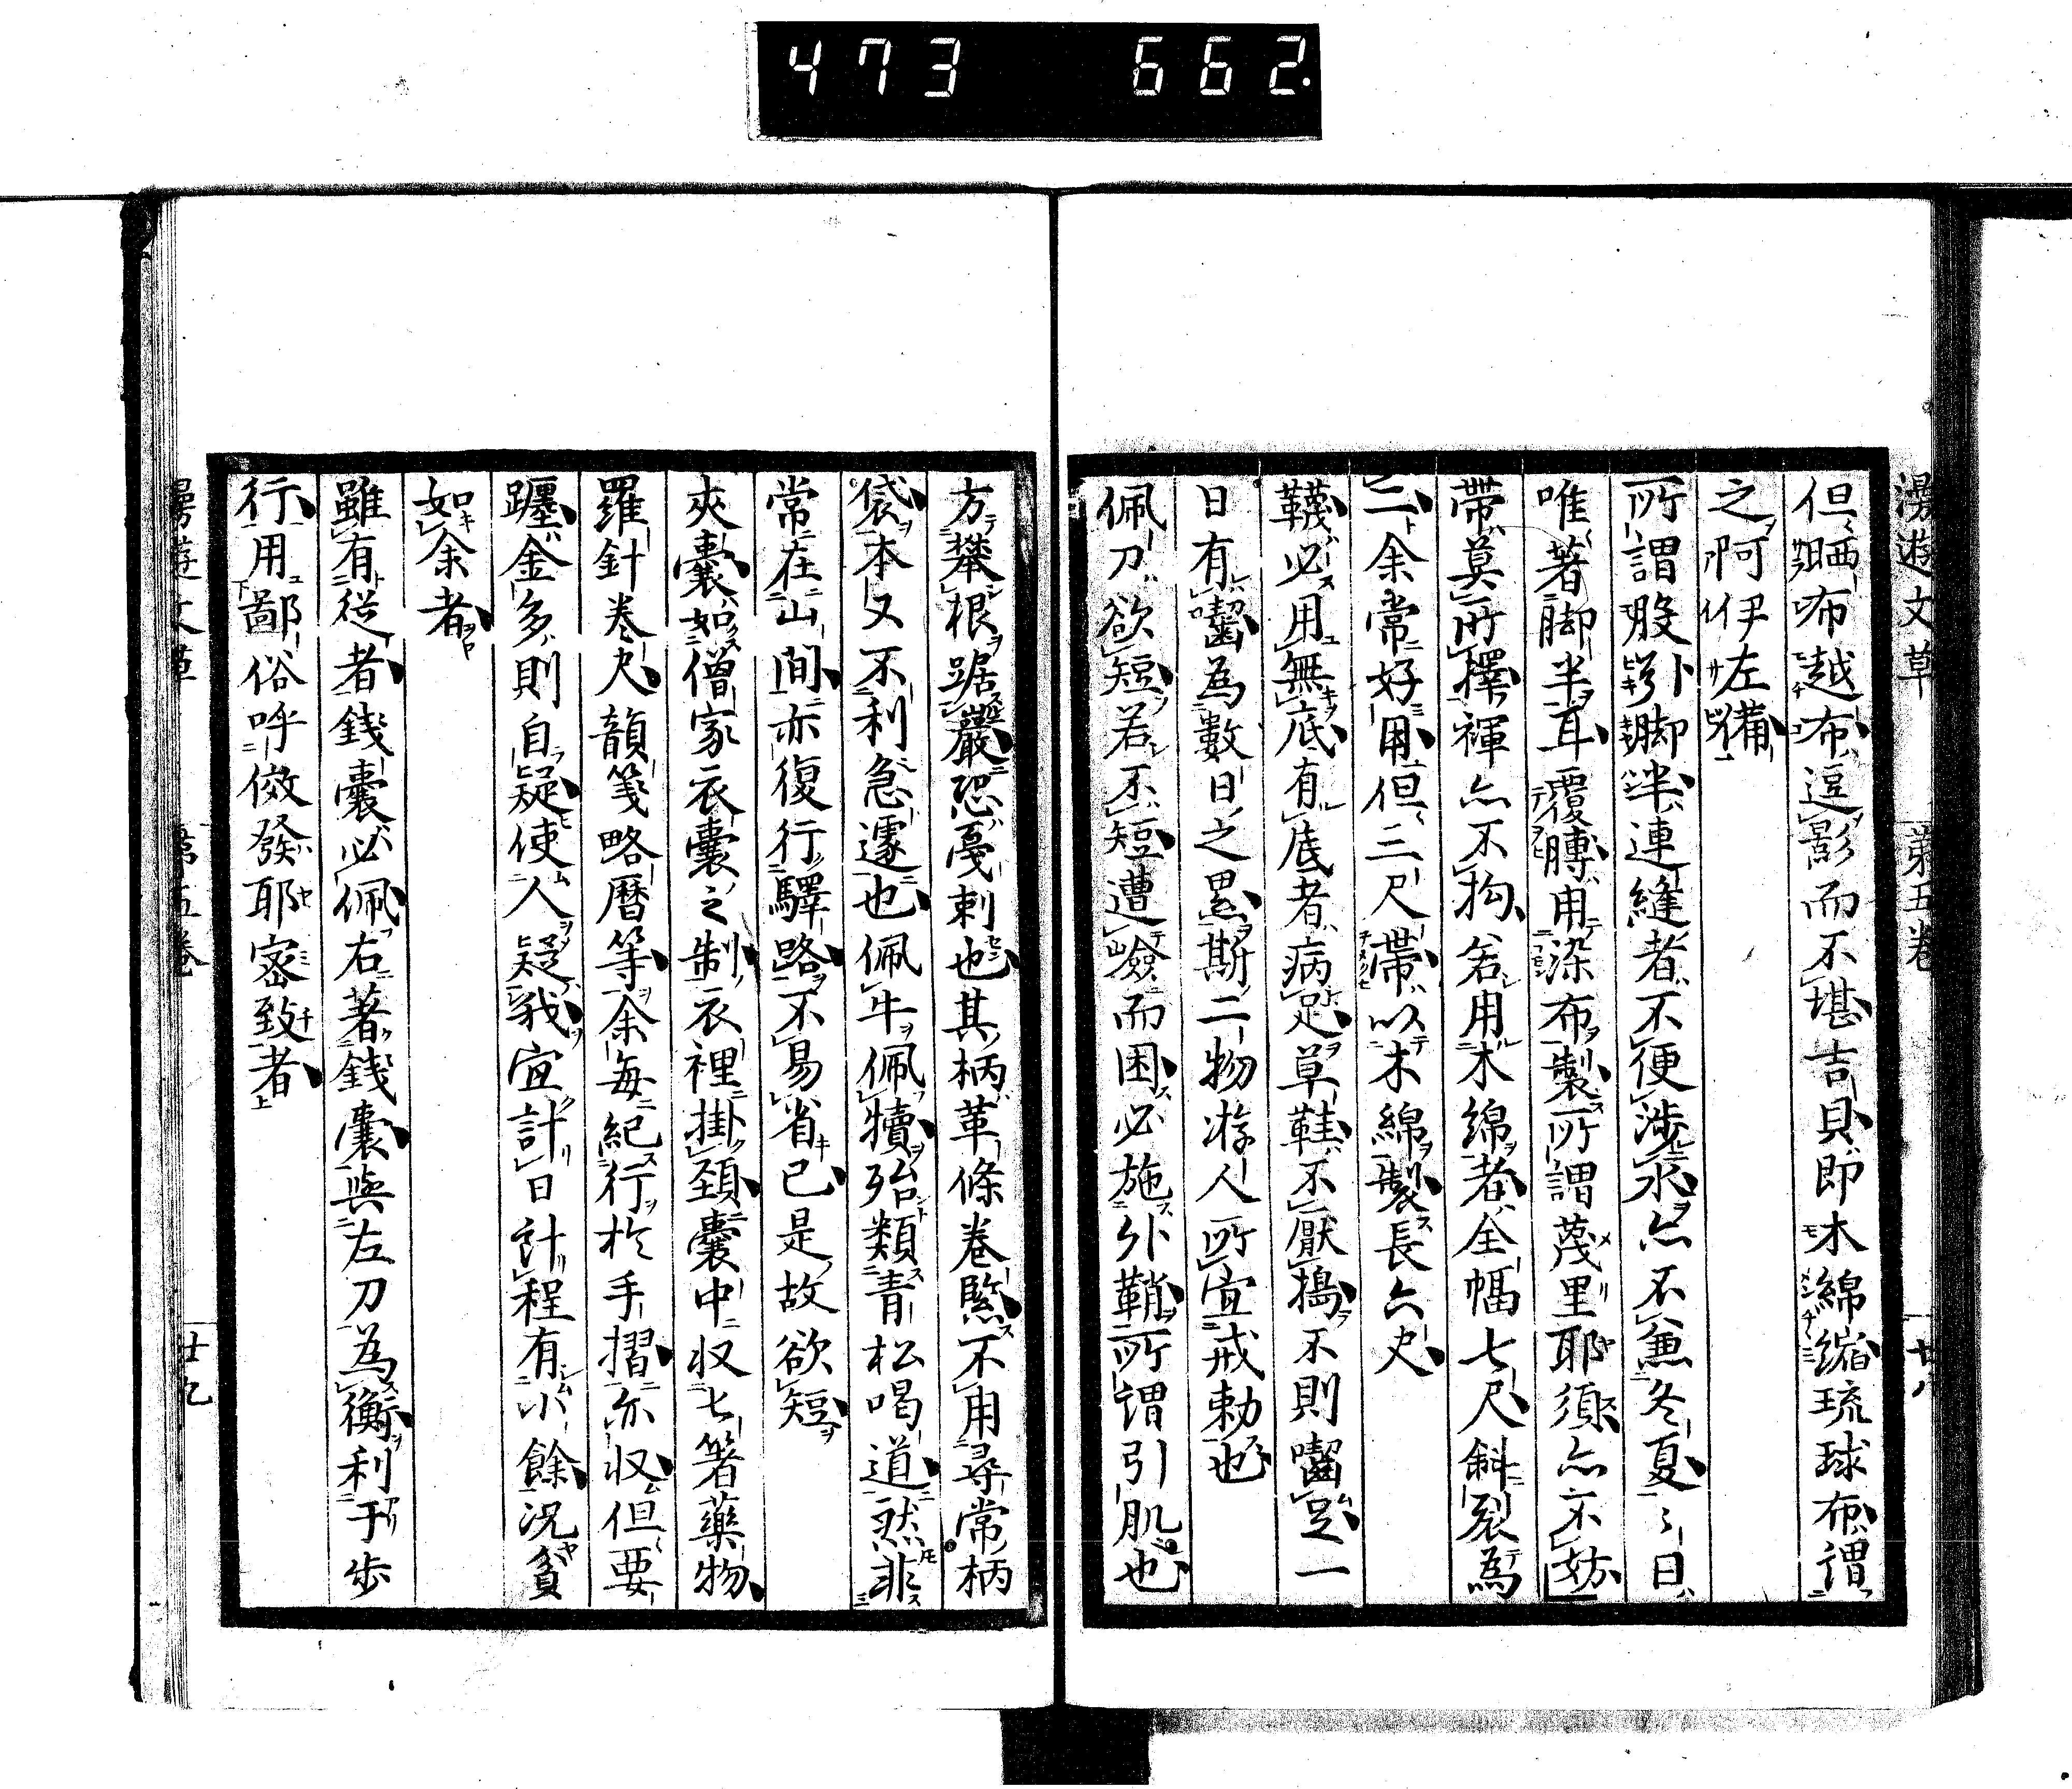 473 662.
漫遊文草 第五卷 廿八
但晒布越布逗影而不堪吉貝即木綿縮琉球布謂
之阿伊左備
所謂股引脚半連縫者不便渉水亦不兼冬夏夏日
唯著脚半耳覆膞用染布製所謂莈里耶須亦不妨
帶莫所擇褌亦不拘若用木綿者全幅七尺斜裂為
二余常好用但三尺帶以木綿製長六尺
韈必用無底有底者病足草鞋不厭擣不則嚙足一
日有嚙為數日之累斯二物游人所宜戒勅也
佩刀欲短若不短遭嶮而困必施外鞘所謂引肌也
方攀根踞巖恐戛刺也其柄革條卷緊不用尋常柄
袋本又不利急遽也佩牛佩犢殆類青松喝道然非
常在山間亦復行驛路不易省已是故欲短
夾囊如僧家衣囊之制衣裡掛頚囊中収匕箸藥物
羅針卷尺韻箋略曆等余每紀行於手摺亦収但要
躔金多則自疑使人疑我宜計日計程有小餘况貧
如余者
雖有從者錢囊必佩右著錢囊與左刀為衡利于步
行用鄙俗呼傚發耶密致者
漫遊文草 第五卷 廿九